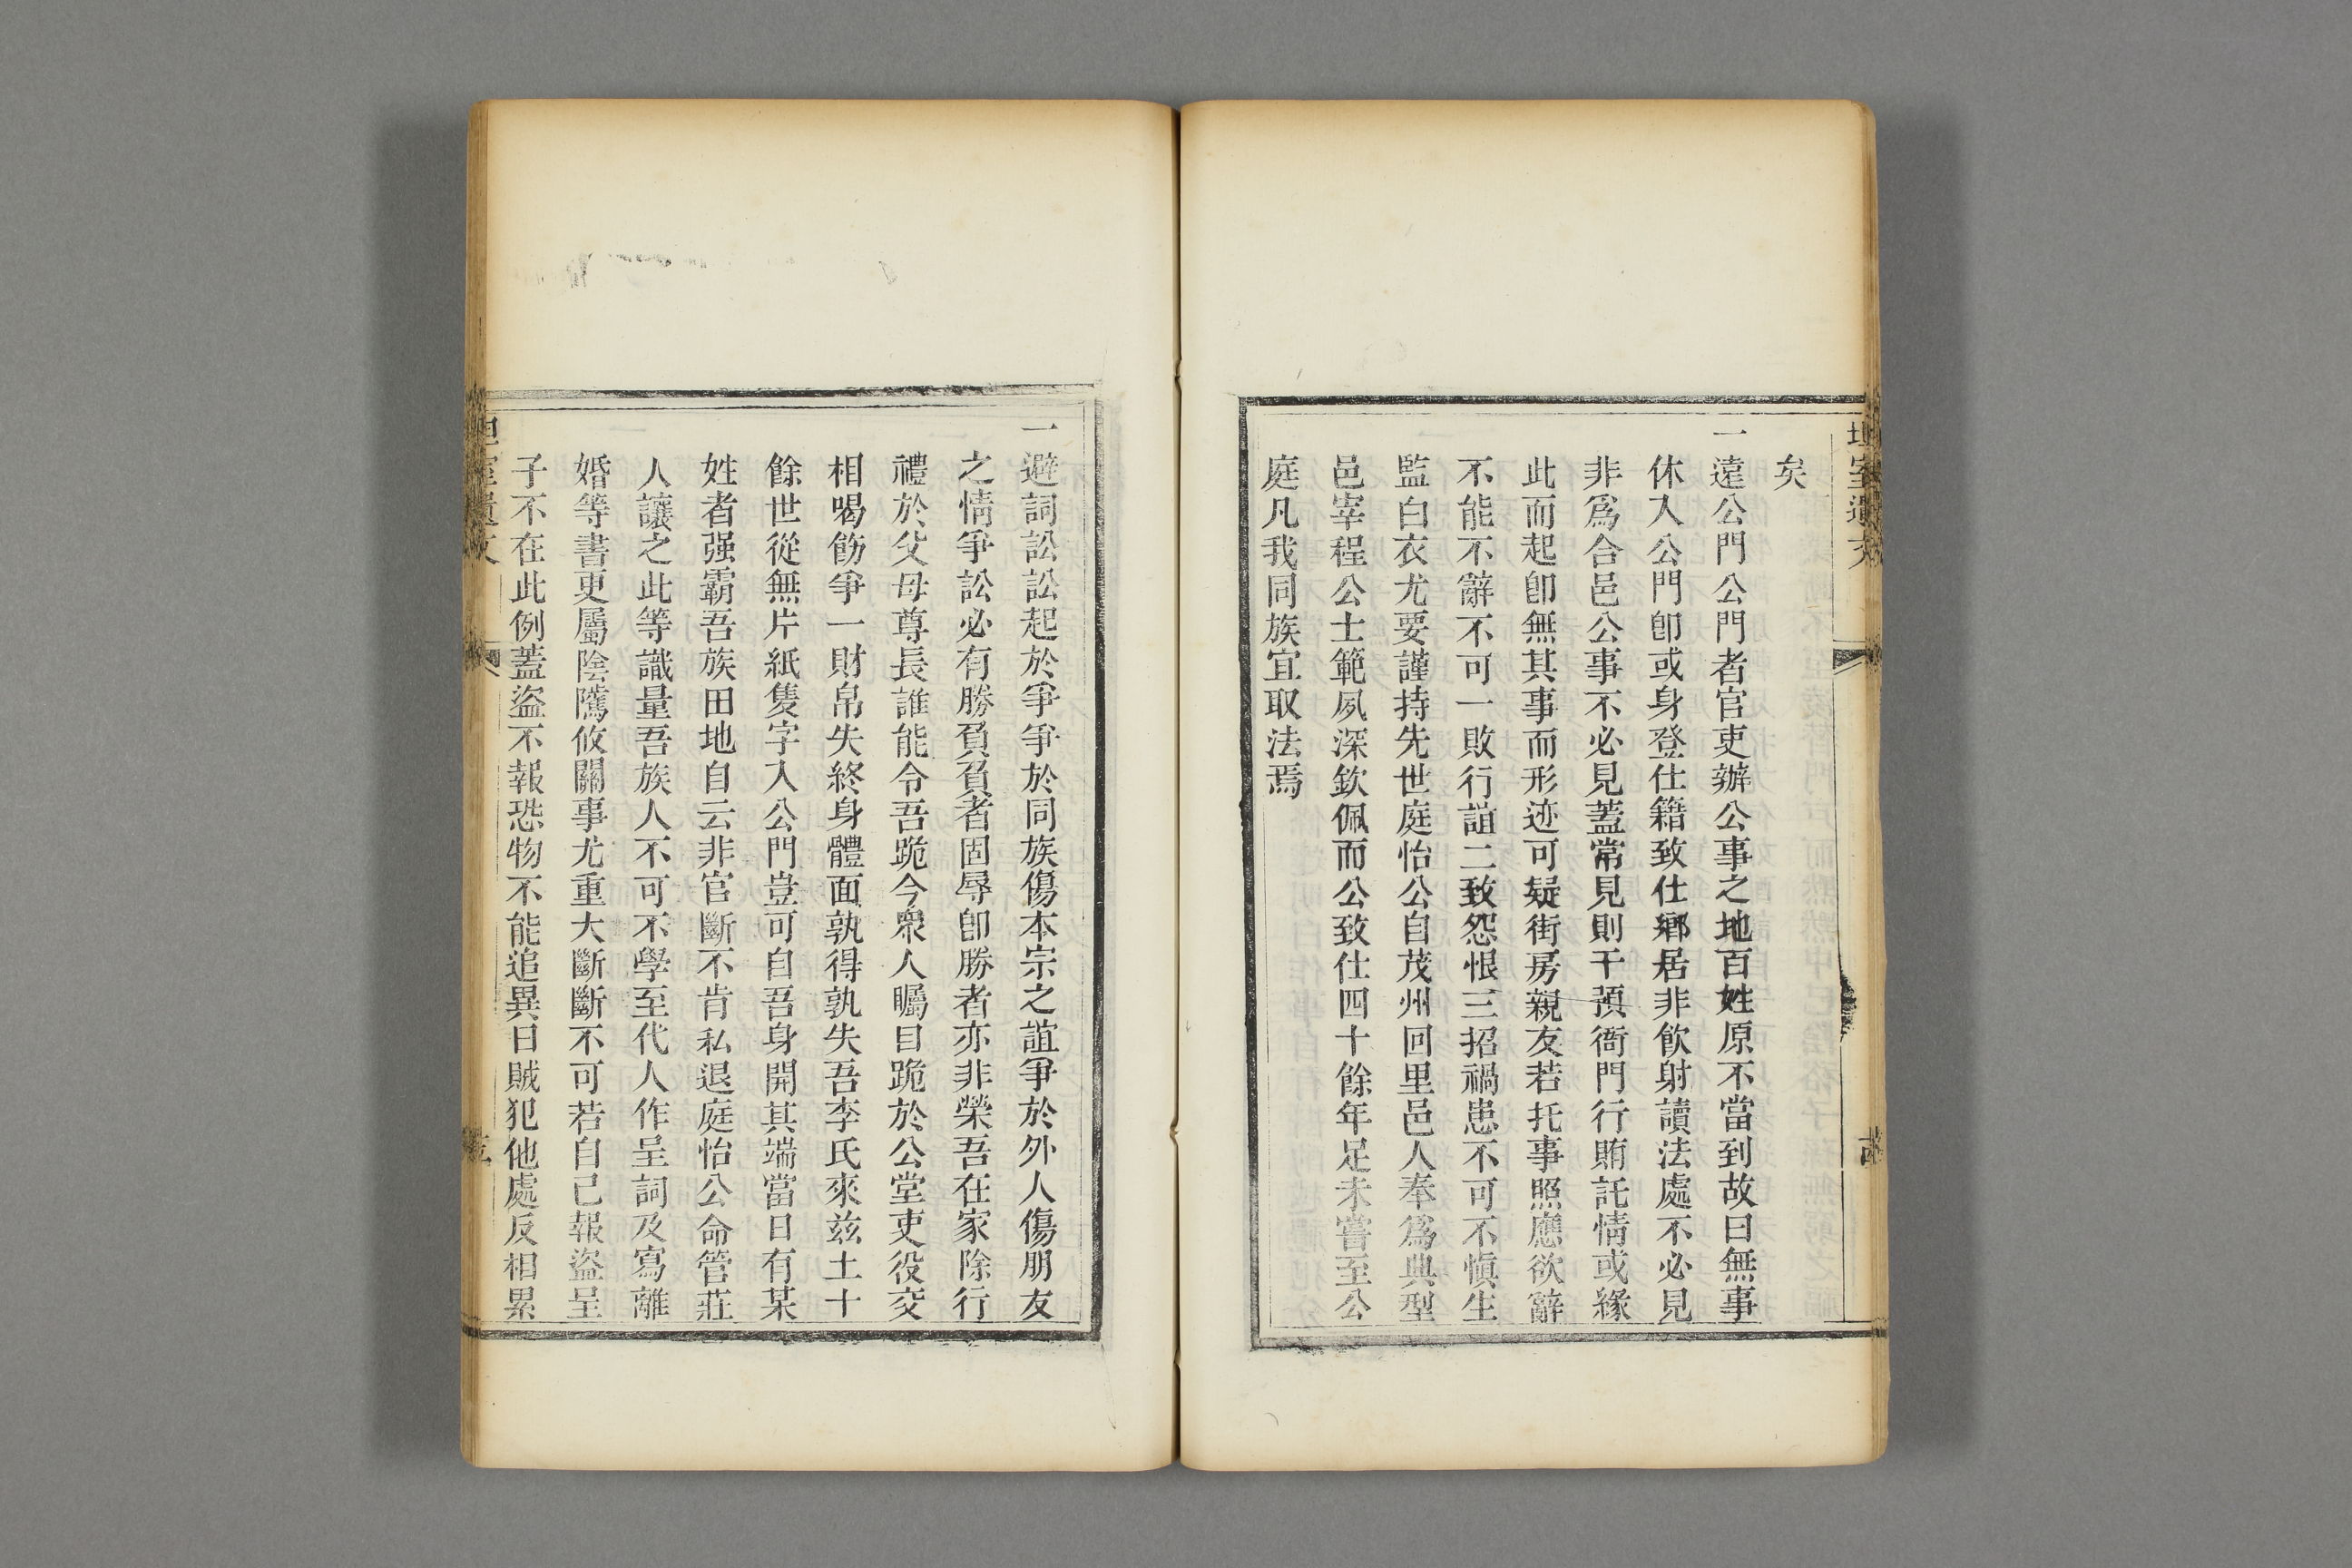 矣
一遠公門公門者官吏辦公事之地百姓原不當到故曰無事
休入公門卽或身登仕籍致仕鄉居非飮射讀法處不必見
非爲合邑公事不必見蓋常見則干預衙門行賄託情或緣
此而起卽無其事而形迹可疑街房親友若托事照應欲辭
不能不辭不可一敗行誼二致怨恨三招禍患不可不愼生
監白衣尤要謹持先世庭怡公自茂州回里邑人奉爲典型
邑宰程公士範夙深欽佩而公致仕四十餘年足未嘗至公
庭凡我同族宜取法焉
一避詞訟訟起於爭爭於同族傷本宗之誼爭於外人傷朋友
之情爭訟必有勝負負者固辱卽勝者亦非榮吾在家除行
禮於父母尊長誰能令吾跪今衆人矚目跪於公堂吏役交
相喝飭爭一財帛失終身體面孰得孰失吾李氏來茲土十
餘世從無片紙隻字入公門豈可自吾身開其端當日有某
姓者强霸吾族田地自云非官斷不肯私退庭怡公命管莊
人讓之此等識量吾族人不可不學至代人作呈詞及寫離
婚等書更屬陰隲攸關事尤重大斷斷不可若自己報盜呈
子不在此例蓋盜不報恐物不能追異日賊犯他處反相累